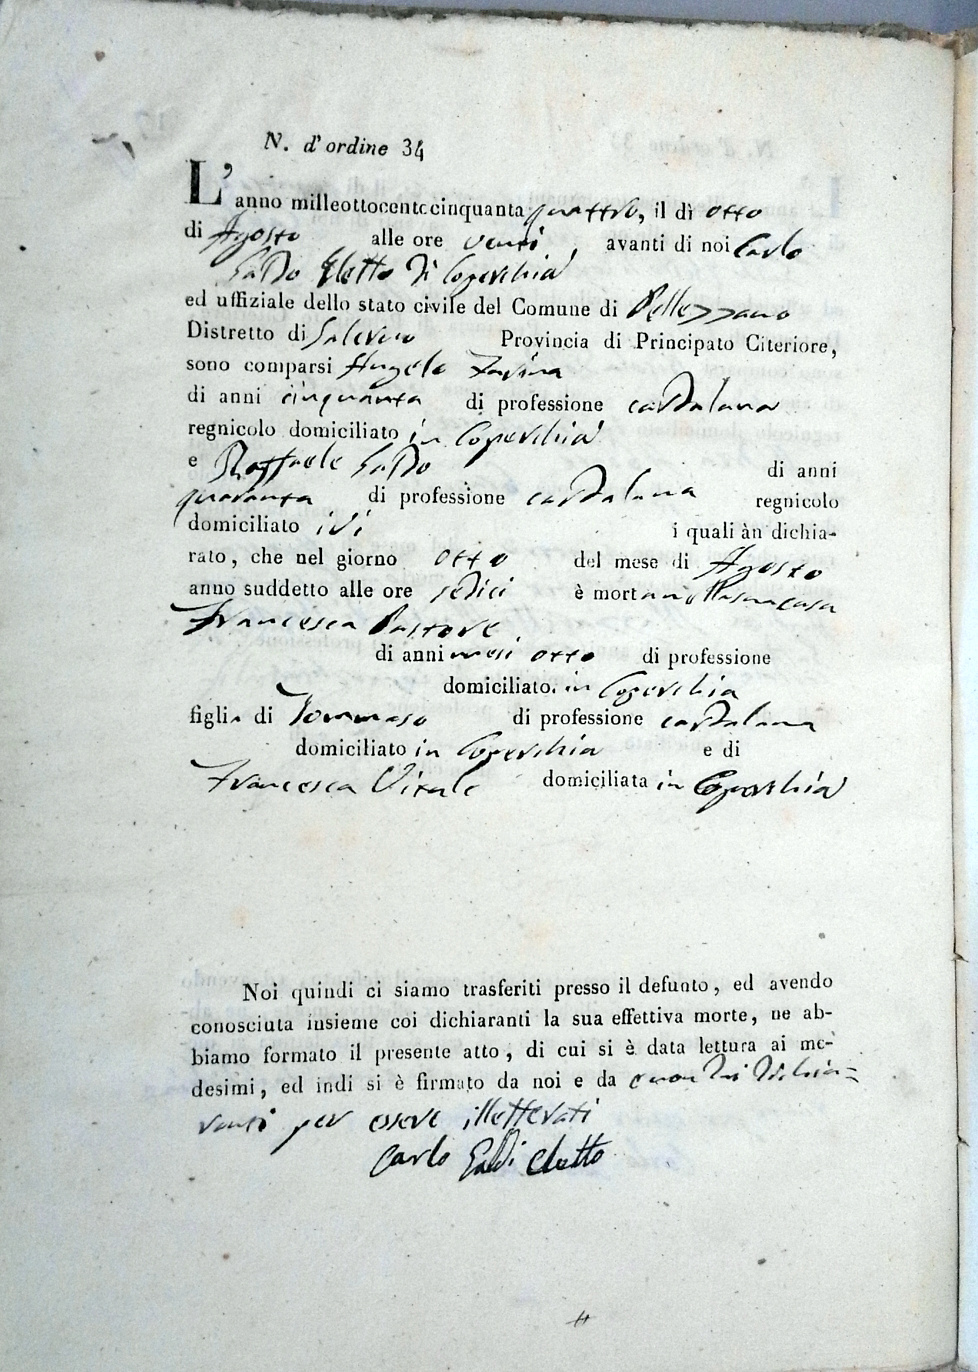 N. d'ordine 34
L'anno milleottocentocinquanta quattro, il dì otto
di Agosto alle ore venti avanti di noi Carlo
Galdo Eletto di Coperchia
ed uffiziale dello stato civile del Comune di Pellezzano
Distretto di Salerno Provincia di Principato Citeriore,
sono comparsi Angelo
di anni cinquanta di professione cardalana
regnicolo domiciliato in Coperchia
e Raffaele Galdo di anni
quaranta di professione cardalana regnicolo
domiciliato ivi i quali àn dichia-
rato, che nel giorno otto del mese di Agosto
anno suddetto alle ore sedici è morta nella sua casa
Francesca Pastore
di anni mesi otto di professione
domiciliato in Coperchia
figlia di Tommaso di professione cardalana
domiciliato in Coperchia e di
Francesca Vitale domiciliata in Coperchia
Noi quindi ci siamo trasferiti presso il defunto, ed avendo
conosciuta insieme coi dichiaranti la sua effettiva morte, ne ab-
biamo formato il presente atto, di cui si è data lettura ai me-
desimi, ed indi si è firmato da noi e da dichia=
ranti per essere illetterati
Carlo Galdi Eletto